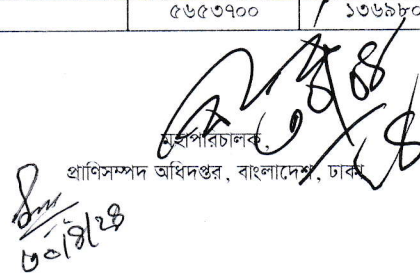 ৫৬৫৩৭০০ ১৩৬৯৮০
মহাপরিচালক,
প্রাণিসম্পদ অধিদপ্তর, বাংলাদেশ, ঢাকা
৩০/৪/২৪